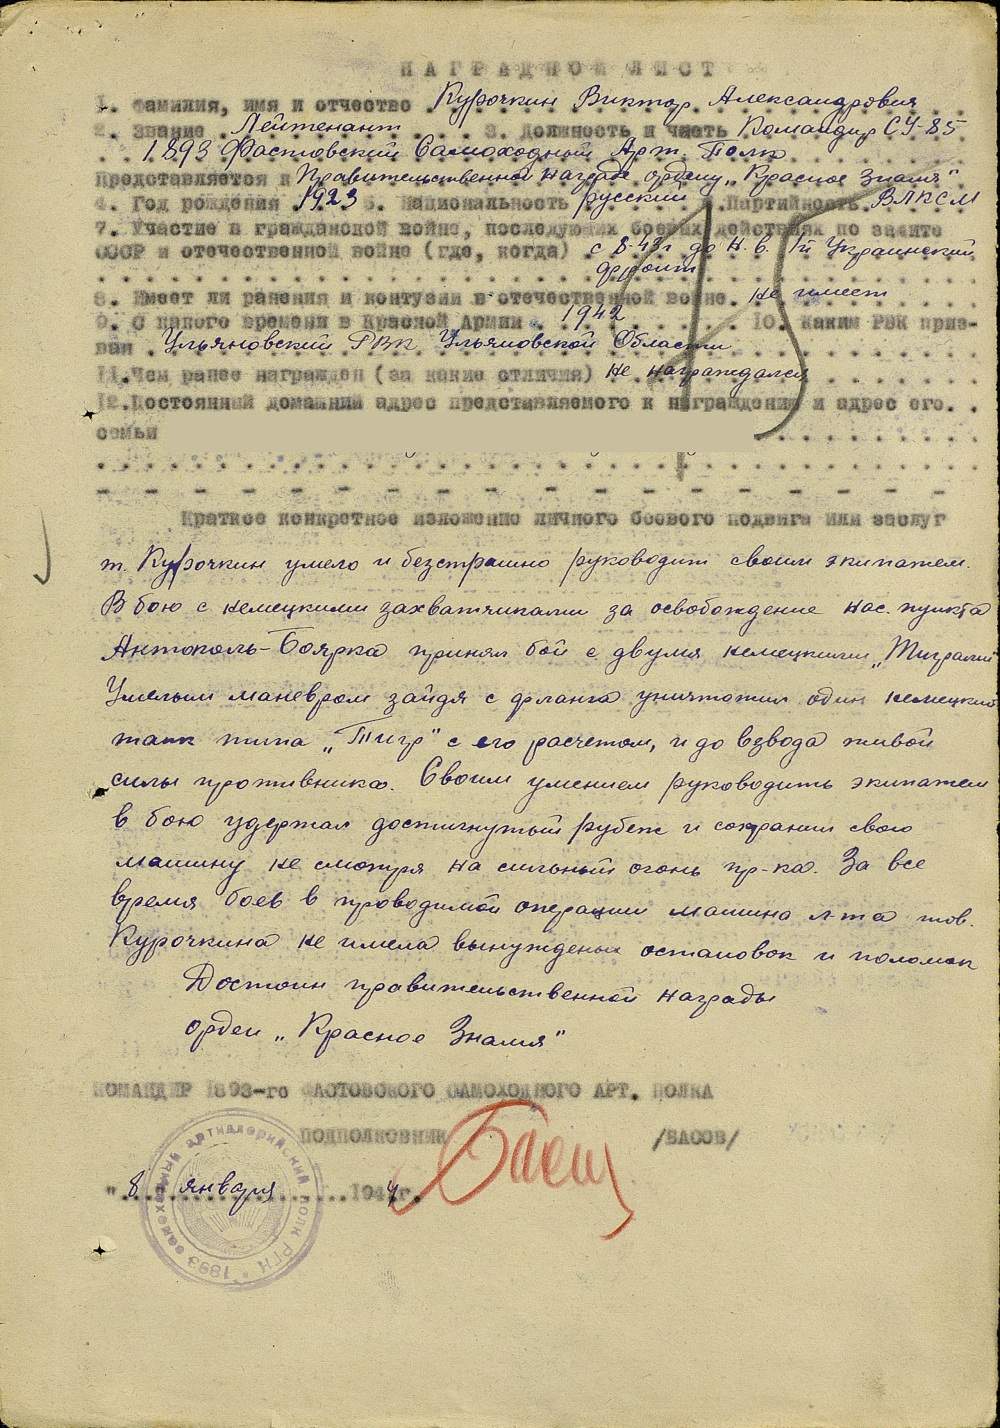 НАГРАДНОЙ ЛИСТ
1. Фамилия, имя и отчество Курочкин Виктор Александрович
2. Звание Лейтенант 3. Должность и часть Командир СУ-85
1893 Фастовский Самоходный Арт. Полк
Представляется к Правительственной награде ордену „Красное Знамя"
4. Год рождения 1923 5. Национальность русский 6. Партийность ВЛКСМ
7. Участие в гражданской войне, последующих боевых действиях по защите
СССР и отечественной войне (где, когда) с 8-43г. до н.в. 1й Украинский
фронт
8. Имеет ли ранения и контузии в отечественной войне. не имеет
9. С какого времени в Красной Армии 1942 10. Каким РВК приз-
ван Ульяновский РВК Ульяновской Области
11. Чем ранее награжден (за какие отличия) не награждался
12. Постоянный домашний адрес представляемого к награждению и адрес его
семьи
15
Краткое конкретное изложение личного боевого подвига или заслуг
т. Курочкин умело и безстрашно руководит своим экипажем.
В бою с немецкими захватчиками за освобождение нас. пункта
Антополь-Боярка принял бой с двумя немецкими „Тиграми"
Умелым маневром зайдя с фланга уничтожил один немецкий
танк типа „Тигр" с его расчетом, и до взвода живой
силы противника. Своим умением руководить экипажем
в бою удержал достигнутый рубеж и сохранил свою
машину не смотря на сильный огонь пр-ка. За все
время боев в проводимой операции машина л-та тов.
Курочкина не имела вынужденых остановок и поломок
Достоин правительственной награды
орден „Красное Знамя"
КОМАНДИР 1893-го ФАСТОВСКОГО САМОХОДНОГО АРТ. ПОЛКА
ПОДПОЛКОВНИК Басов /БАСОВ/
"8 января 1944г.
1893 самоходный артиллерийский полк РГК